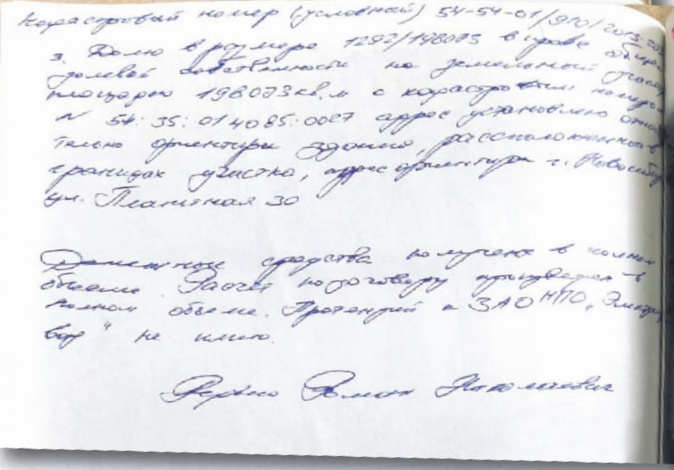 Кадастровый номер (условный) 54-54-01/910/2013-
3. Долю в размере 1292/198073 в праве общей
долевой собственности на земельный участок
площадью 198073 кв.м с кадастровым номером
№ 54:35:014085:0027 адрес установлено относи
тельно ориентира здание, расположенного в
границах участка, адрес ориентира г. Новосибирск
ул. Планетная 30
Денежные средства получены в полном
объеме. Расчет по договору произведен в
полном объеме. Претензий к ЗАО НПО "
" не имею.
Роман Николаевич